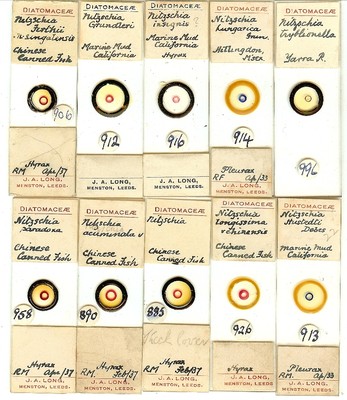 DIATOMACEÆ
Nitzschia
Chinese
Canned Fish
906
Hyrax
RM Apr/37
J. A. LONG,
MENSTON, LEEDS.
DIATOMACEÆ
Nitzschia
Grundleri
Marine Mud
California
912
J. A. LONG,
MENSTON, LEEDS.
DIATOMACEÆ
Nitzschia
insignis
Marine Mud
California
Hyrax
916
J. A. LONG,
MENSTON, LEEDS.
DIATOMACEÆ
Nitzschia
hungarica
Grun.
Hillingdon,
Midx
914
Pleurax
RF Apr/33
J. A. LONG,
MENSTON, LEEDS.
DIATOMACEÆ
Nitzschia
tryblionella
Yarra R.
996
J. A. LONG,
MENSTON, LEEDS.
DIATOMACEÆ
Nitzschia
paradoxa
Chinese
Canned Fish
958
Hyrax
RM. Apr/37
J. A. LONG,
MENSTON, LEEDS.
DIATOMACEÆ
Nitzschia
acuminata v
Chinese
Canned Fish
890
Hyrax
RM. Feb/37
J. A. LONG,
MENSTON, LEEDS.
DIATOMACEÆ
Nitzschia
Chinese
Canned Fish
885
Hyrax
RM Feb/37
J. A. LONG,
MENSTON, LEEDS.
DIATOMACEÆ
Nitzschia
longissima
v chinensis
Chinese
Canned Fish
926
Hyrax
J. A. LONG,
MENSTON, LEEDS.
DIATOMACEÆ
Nitzschia
Hustedti
Marine Mud
California
913
Pleurax
RM. Apr/33
J. A. LONG,
MENSTON, LEEDS.